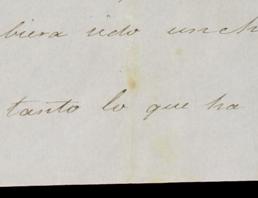 biera sido un ch
tanto lo que ha